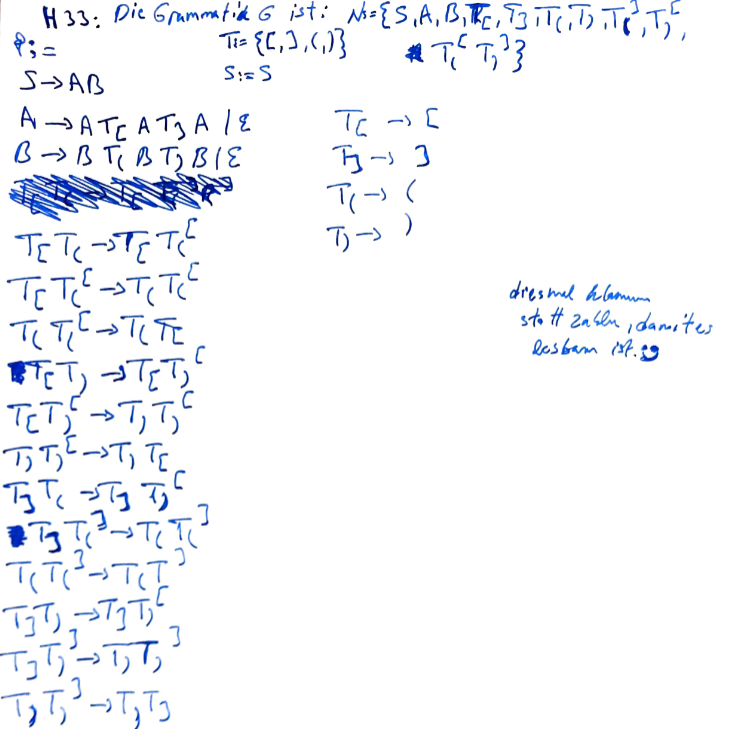 H33: Die Grammatik G ist: N={S,A,B,T[,T],T(,T),T(],T)[,
P:= T:={[,],(,)} T([ T)]}
S→AB S:=S
A→A T[ A T] A | ε T[ → [
B→B T( B T) B | ε T] → ]
T( → (
T) → )
T[ T( → T[ T([
T[ T([ → T( T([
T( T([ → T( T[
T[ T) → T[ T)[
T[ T)[ → T) T)[
T) T)[ → T) T[
T] T( → T] T)[
T] T(] → T( T(]
T( T(] → T( T]
T] T) → T] T)[
T] T)] → T) T)]
T) T)] → T) T]
diesmal klammern
statt zahlen, damit es
lesbar ist.